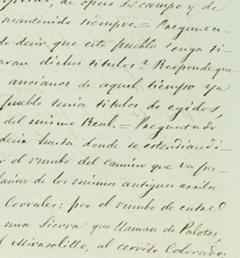 de apeos de campo y de
mantenido siempre.= Pregunta-
do decir que este pueblo tenga ti-
dichos titulos? Responde que
ancianos de aquel tiempo ya
pueblo tenia titulos de egidos
del mismo Real.= Preguntado
decir hasta donde se estendian
el rumbo del camino que va
de los mismos antiguos
Corrales: por el rumbo de
una Sierra que llaman de Palotas,
Mirasolillo, al cerrito Colorado